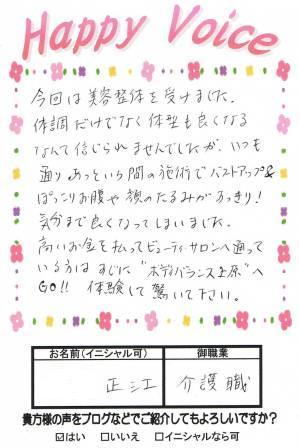 Happy Voice
今回は美容整体を受けました。
体調だけでなく体型も良くなる
なんて信じられませんでしたが、いつも
通りあっという間の施術でバストアップ&
ぽっこりお腹や顔のたるみがすっきり!
気分まで良くなってしまいました。
高いお金を払ってビューティーサロンへ通って
いる方はすぐに"ボディバランス上原"へ
GO!! 体験して驚いて下さい。
お名前(イニシャル可)
御職業
正江
介護職
貴方様の声をブログなどでご紹介してもよろしいですか?
☑はい □いいえ □イニシャルなら可